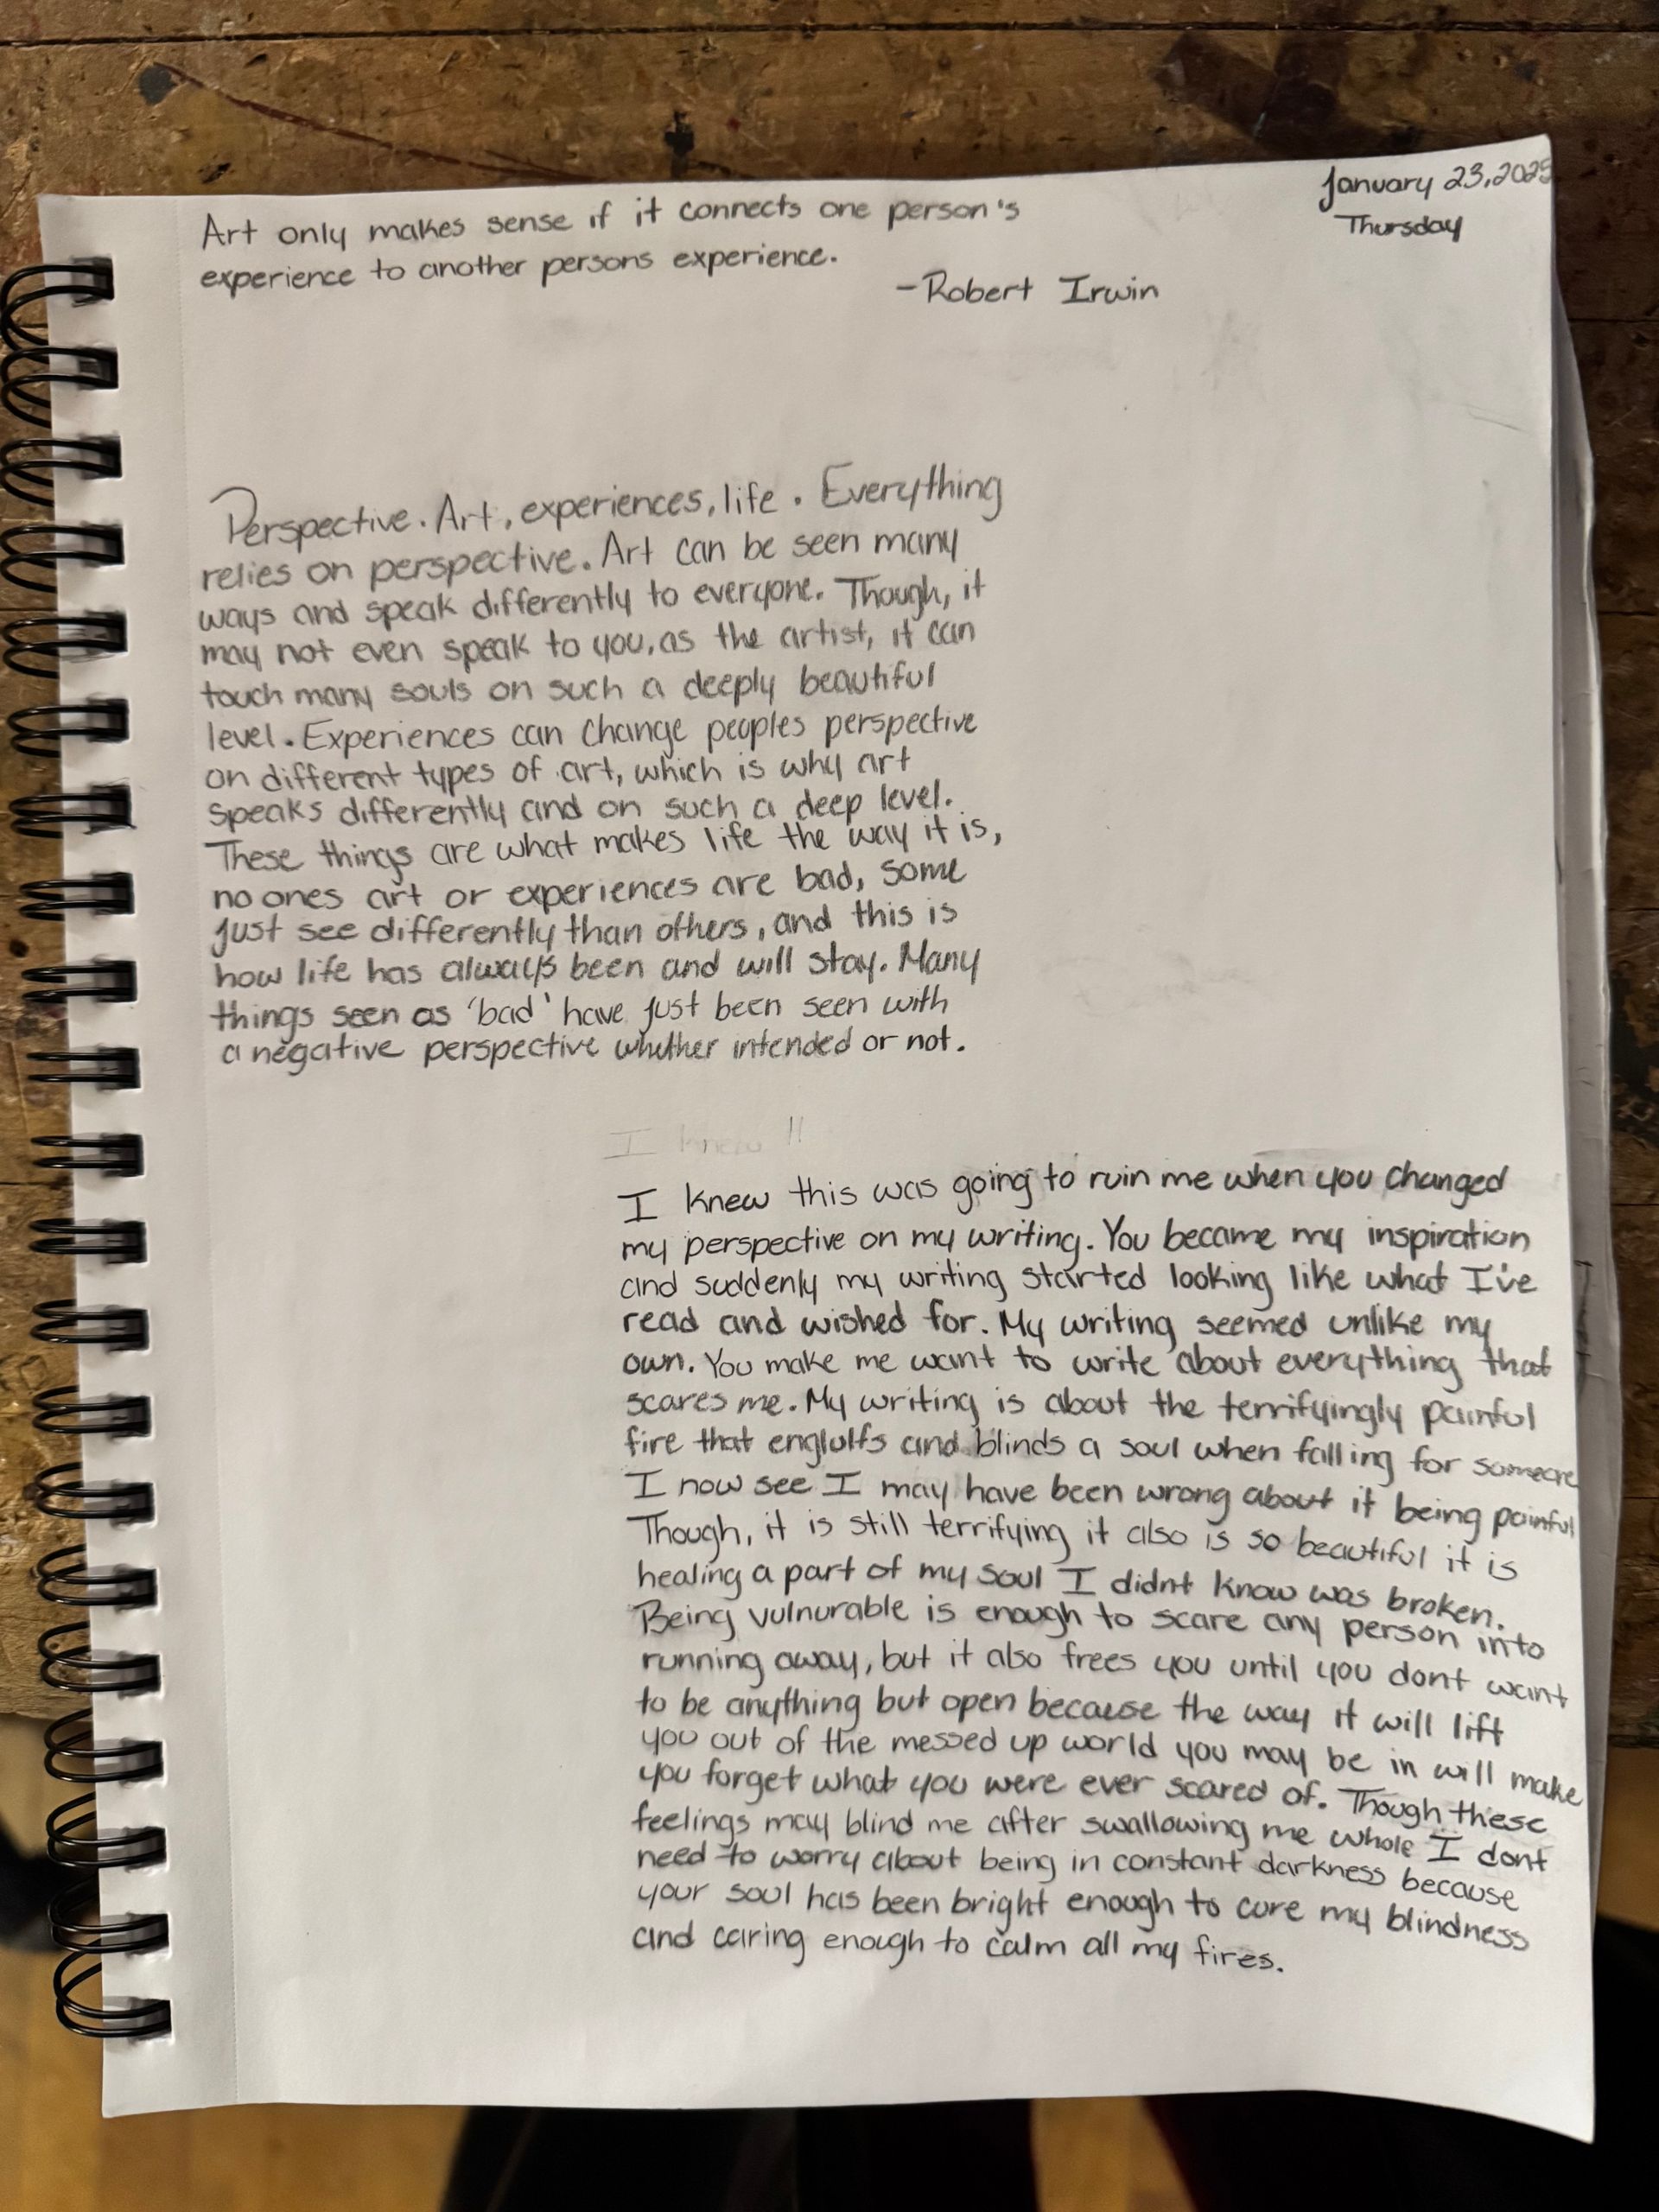 January 23, 2025
Thursday
Art only makes sense if it connects one person's
experience to another persons experience.
-Robert Irwin
Perspective. Art, experiences, life. Everything
relies on perspective. Art can be seen many
ways and speak differently to everyone. Though, it
may not even speak to you, as the artist, it can
touch many souls on such a deeply beautiful
level. Experiences can change peoples perspective
on different types of art, which is why art
speaks differently and on such a deep level.
These things are what makes life the way it is,
no ones art or experiences are bad, some
just see differently than others, and this is
how life has always been and will stay. Many
things seen as 'bad' have just been seen with
a negative perspective whether intended or not.
I knew
I knew this was going to ruin me when you changed
my perspective on my writing. You became my inspiration
and suddenly my writing started looking like what I've
read and wished for. My writing seemed unlike my
own. You make me want to write about everything that
scares me. My writing is about the terrifyingly painful
fire that englulfs and blinds a soul when falling for someone
I now see I may have been wrong about it being painful
Though, it is still terrifying it also is so beautiful it is
healing a part of my soul I didnt know was broken.
Being vulnurable is enough to scare any person into
running away, but it also frees you until you dont want
to be anything but open because the way it will lift
you out of the messed up world you may be in will make
you forget what you were ever scared of. Though these
feelings may blind me after swallowing me whole I dont
need to worry about being in constant darkness because
your soul has been bright enough to cure my blindness
and caring enough to calm all my fires.